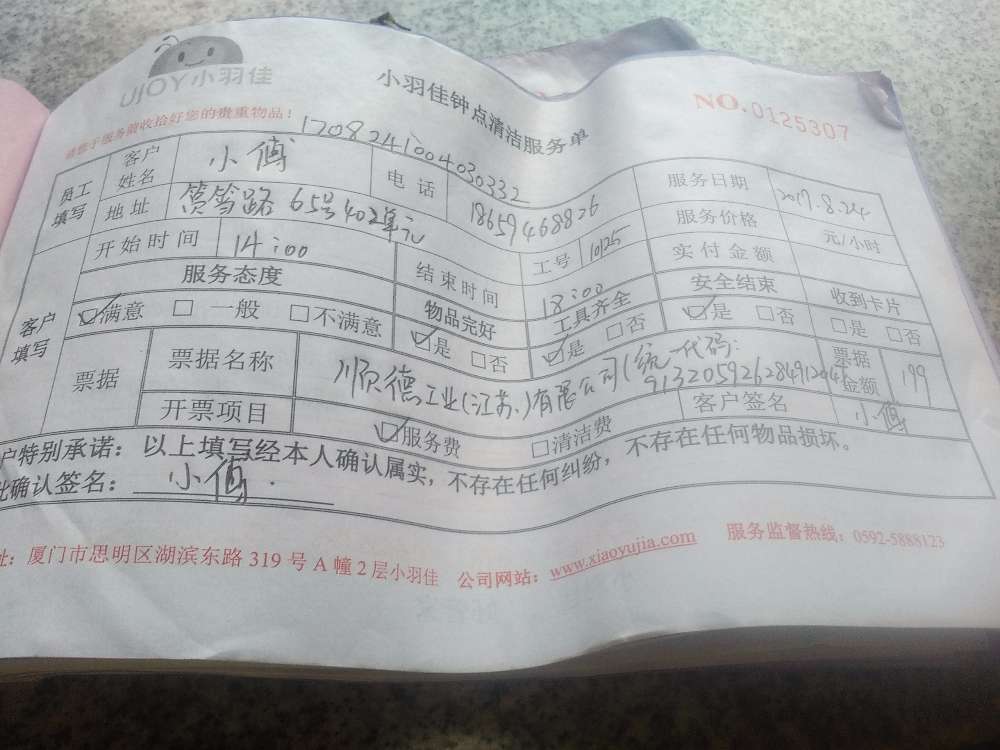 UJOY小羽佳
小羽佳钟点清洁服务单
NO.0125307
请您于服务前收拾好您的贵重物品！
1708241004030332
员工填写 客户姓名 小傅 电话 18659468826 服务日期 2017.8.24
地址 筼筜路65号402单元 工号 10125 服务价格 元/小时
客户填写 开始时间 14:00 结束时间 18:00 实付金额
服务态度 物品完好 工具齐全 安全结束 收到卡片
☑满意 □一般 □不满意 ☑是 □否 ☑是 □否 ☑是 □否 □是 □否
票据 票据名称 顺德工业(江苏)有限公司(统一代码: 票据金额 199
开票项目 ☑服务费 □清洁费 客户签名 小傅
户特别承诺：以上填写经本人确认属实，不存在任何纠纷，不存在任何物品损坏。
此确认签名：小傅
址：厦门市思明区湖滨东路319号A幢2层小羽佳 公司网站：www.xiaoyujia.com 服务监督热线：0592-5888123